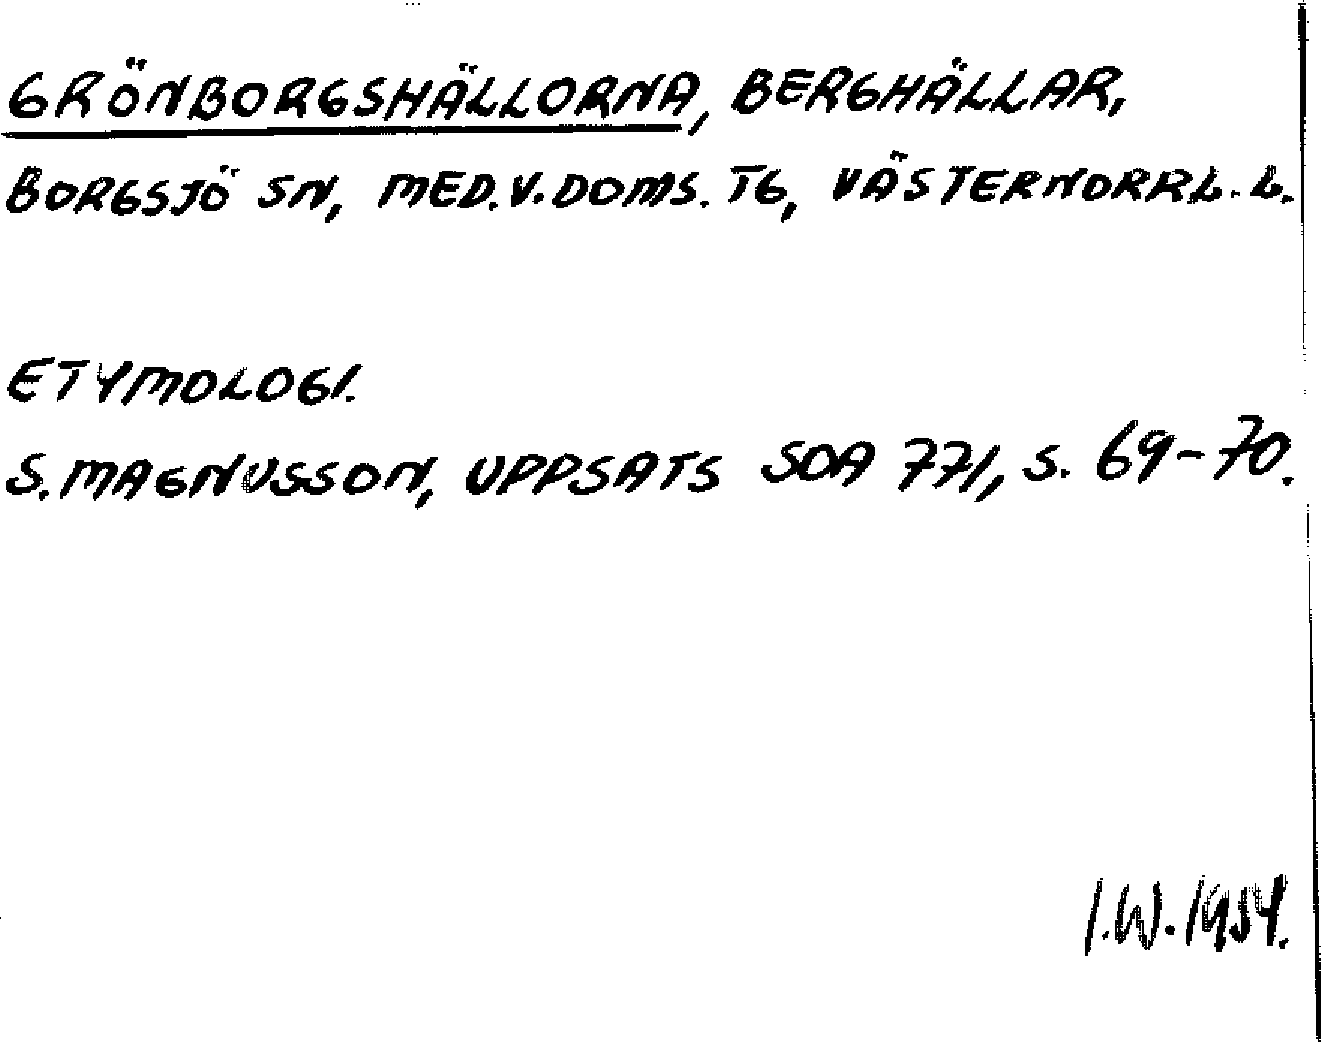 GRÖNBORGSHÄLLORNA, BERGHÄLLAR,
BORGSJÖ SN, MED.V.DOMS. TG, VÄSTERNORRL. L.
ETYMOLOGI.
S. MAGNUSSON, UPPSATS SOA 771, S. 69-70.
I.W. 1954.